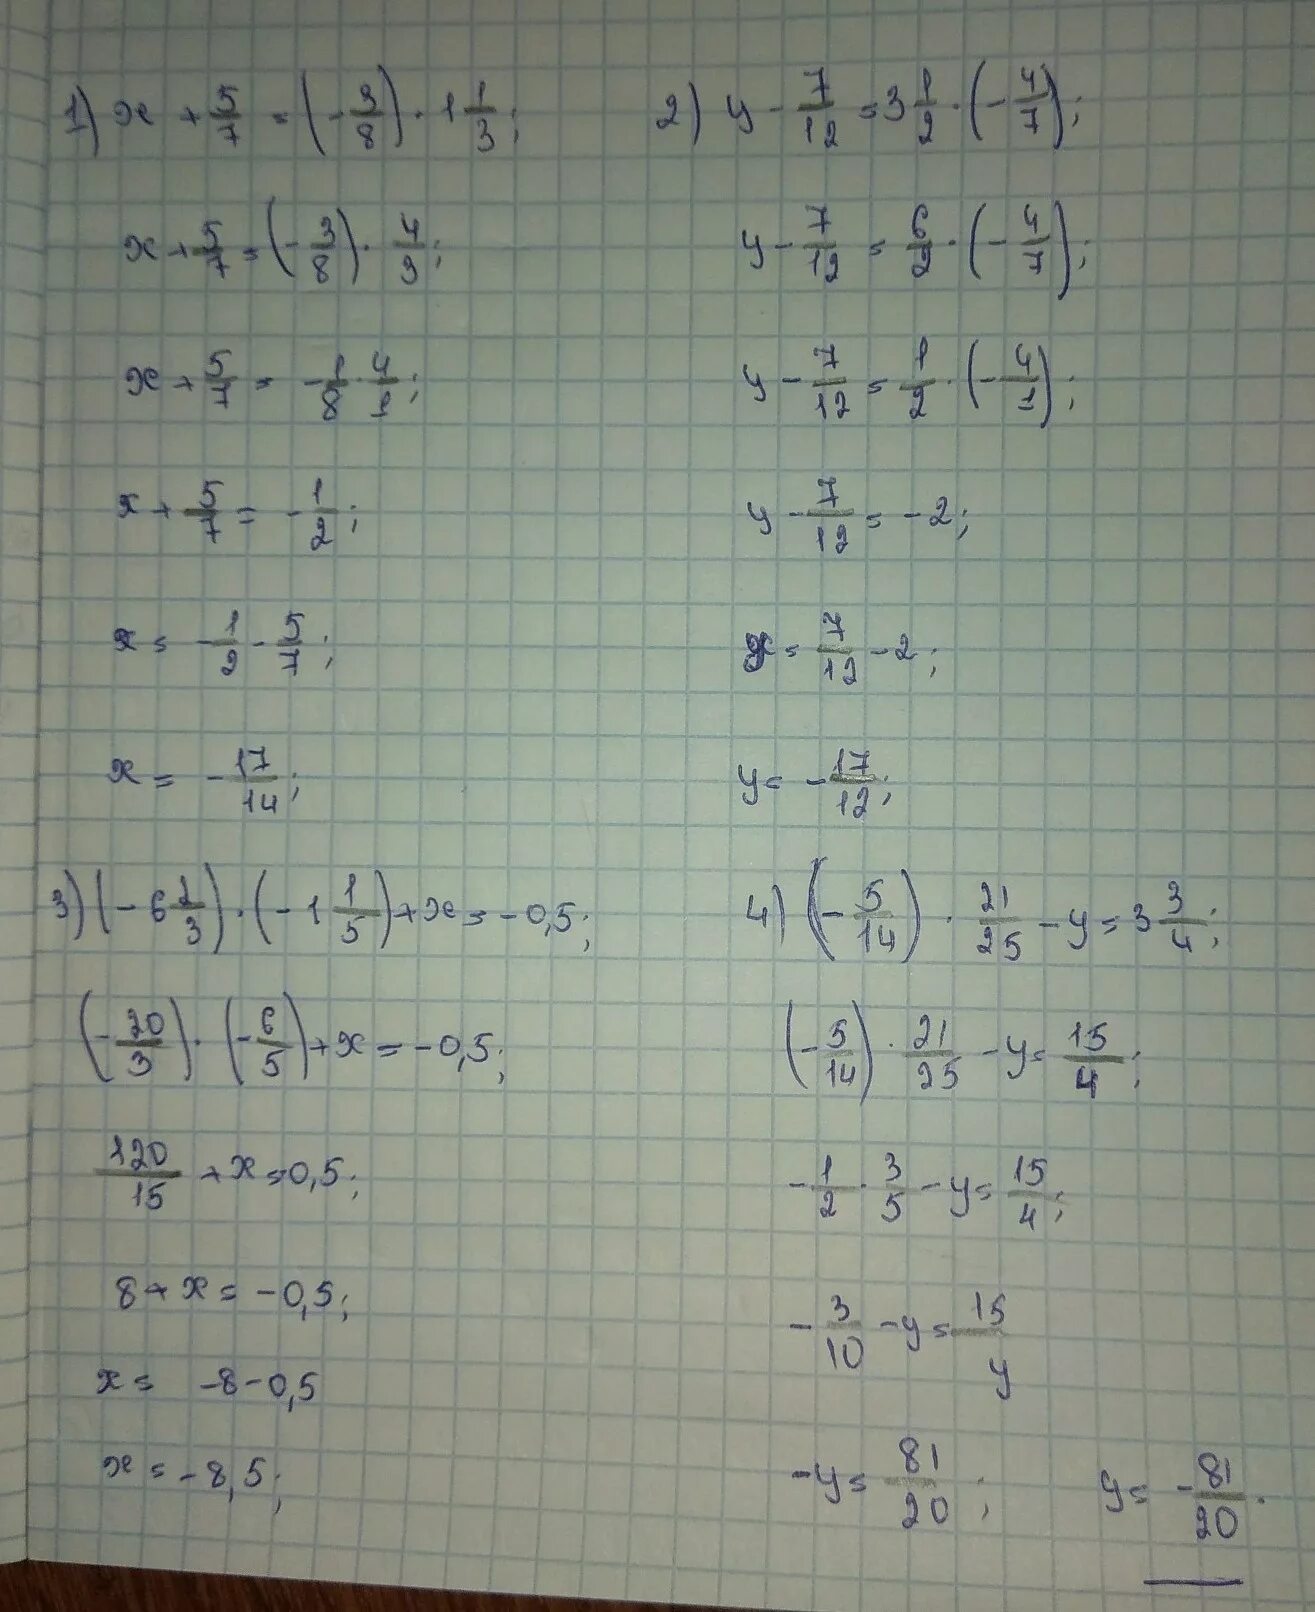 1) x + 5/7 = (-3/8) · 1 1/3;
x + 5/7 = (-3/8) · 4/3;
x + 5/7 = -1/8 · 4/1;
x + 5/7 = -1/2;
x = -1/2 - 5/7;
x = -17/14;
2) y - 7/12 = 3 1/2 · (-4/7);
y - 7/12 = 6/2 · (-4/7);
y - 7/12 = 1/2 · (-4/1);
y - 7/12 = -2;
y = 7/12 - 2;
y = -17/12;
3) (-6 2/3) · (-1 1/5) + x = -0,5;
(-20/3) · (-6/5) + x = -0,5;
120/15 + x = 0,5;
8 + x = -0,5;
x = -8 - 0,5
x = -8,5;
4) (-5/14) · 21/25 - y = 3 3/4;
(-5/14) · 21/25 - y = 15/4;
-1/2 · 3/5 - y = 15/4;
-3/10 - y = 15/y
-y = 81/20; y = -81/20.